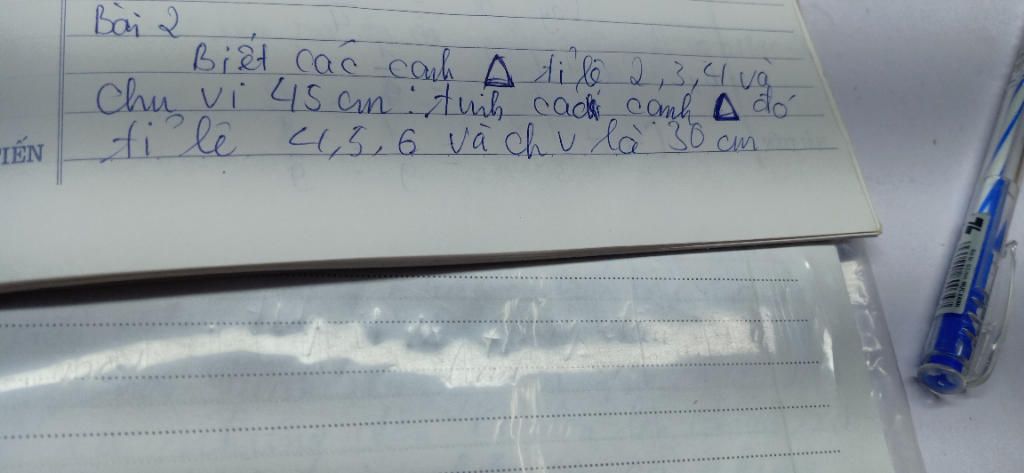 Bài 2
Biết các cạnh Δ tỉ lệ 2,3,4 và
chu vi 45 cm. tính các cạnh Δ đó
tỉ lệ 4,5,6 và ch v là 30 cm
IẾN